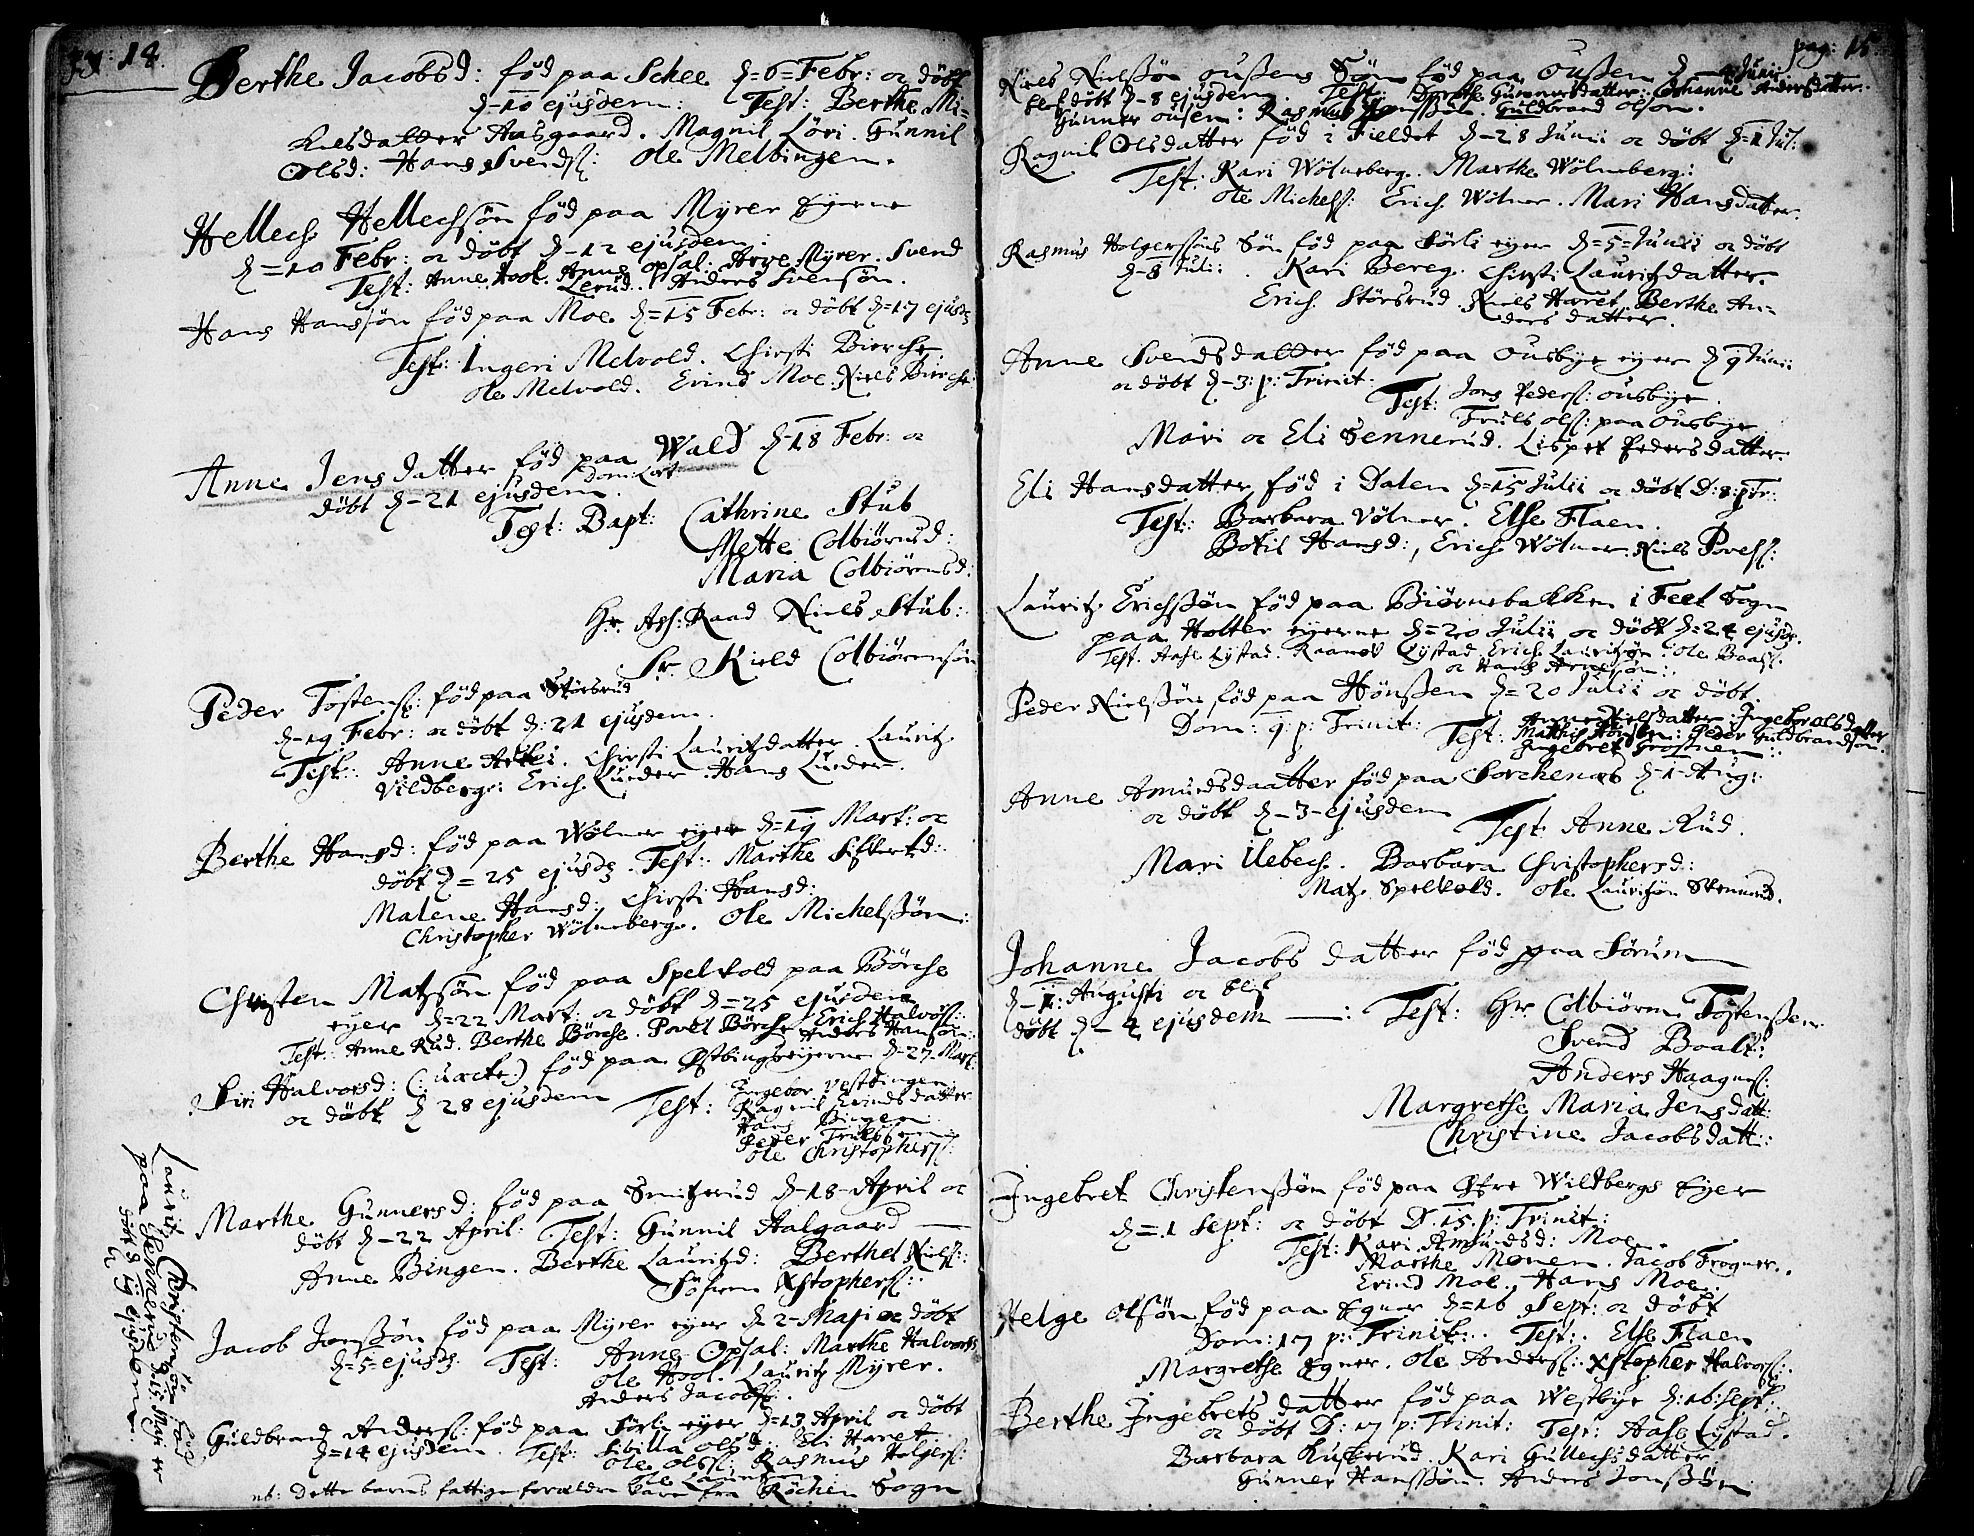 pag: 14.
Berthe Jacobsd: fød paa Schee d=6=Febr: oc døbt
d-10 ejusdem: Test: Berthe Mi=
kelsdatter Aasgaard. Magnil Löri. Gunnil
Olsd: Hans Svends: Ole Melbingen.
Hellech Hellechsøn fød paa Myrer Eyerne
d=10 Febr: oc døbt d-12 ejusdem:
Test: Anne Hool. Anne Opsal: Arve Myrer. Svend
Lerud. Anders Svensøn.
Hans Hanssøn fød paa Moe d=15 Febr: oc døbt d=17 ejusd
Test: Ingeri Melvold. Chirsti Bierche
Ole Melvold. Erind Moe. Niels Bierche:
Anne Jensdatter fød paa Wald d-18 Febr: oc
døbt d-21 ejusdem.
Test: Bapt: Cathrine Stub
Mette Colbiørnsd:
Maria Colbiörnsd:
Hr. Ass: Raad Niels Stub:
Sr. Kield Colbiörnsøn
Peder Tostens: fød paa Störsrud
d-19 Febr: oc døbt d: 21 ejusdem.
Test: Anne . Chirsti Lauritzdatter. Lauritz
Vildberg: Erich Lunder. Hans Lunder.
Berthe Hansd: fød paa Wølner eyer d=19 Mart: oc
døbt d=25 ejusd. Test: Marthe Siffertd:
Malene Hansd: Chirsti Hansd:
Christopher Wølneberg. Ole Michelssøn:
Christen Matzsøn fød paa Spelvold paa Børche
eyer d=22 Mart: oc døbt d=25 ejusdem
Test: Anne Rud. Berthe Børche. Povel Börche. Erich Halvors:
Anders Hansøn:
Siri Halvorsd: (: uæcte) fød paa Østbingseyerne d-27-Mart:
oc døbt d 28 ejusdem Test: Ingebor Vestbingen
Ragnil Erindsdatter
Hans Bingen
Peder Trulssen
Ole Christophers:
Marthe Gunnersd: fød paa Smitzrud d-18-April oc
døbt d-22 April: Test: Gunnil Aalgaard
Anne Bingen. Berthe Lauritzd: Berthel Niels:
Søfren Xstophers:
Jacob Jonssøn fød paa Myrer eyer d 2-Maji oc døbt
d=5=ejusd. Test: Anne Opsal: Marthe Halvorsd
Ole Hool. Lauritz Myrer.
Anders Jacobs:
Guldbrand Anders: fød paa Sörli eyer d=13 April oc døbt
d=14 ejusdem. Test: Sibilla Olsd: Eli Haret
Ole Ols: Rasmus Holgers:
Ole Lauritzøn
nb: dette barns fattige forældre vare fra Röchen Sogn
Lauritz Christensøn fød
paa Sennerud d. 15 Maji er
døbt d 19 ejusdem.
pag: 15
Niels Nielssøn Oussens Søn fød paa Oussen d-4 Junii
blef døbt d-8 ejusdem. Test: Dorothe Gunnersdatter: Johanne Andersdatter.
Gunner Ousen: Rasmus Jonssøn. Guldbrand Olsøn.
Ragnil Olsdatter fød i Fieldet d-28 Junii oc døbt d=1 Jul:
Test: Kari Wølneberg. Marthe Wølneberg:
Ole Michels: Erich Wølner. Mari Hansdatter.
Rasmus Holgerssøns Søn fød paa Sörli eyer d=5=Junii oc døbt
d-8 Julii. Kari Bereg. Chirsti Lauritzdatter.
Erich Störsrud. Niels Haret. Berthe An-
dersdatter.
Anne Svendsdatter fød paa Ousbye eyer d 9 Junii
oc døbt d-3: p: Trinit:
Test: Jens Peders: Ousbye.
Truls Ols: paa Ousbye
Mari oc Eli Sennerud. Lisbet Pedersdatter.
Eli Hansdatter fød i Dalen d=15 Julii oc døbt D: 8: p Tr:
Test: Barbara Völner. Else Flaen.
Botil Hansd:, Erich Wølner. Niels Povels:
Lauritz Erichssøn fød paa Biørnebakken i Feet Sogn
paa Holter eyerne d=20 Julii oc døbt d=24 ejusd.
Test. Aase Lystad. Raanøv Lystad. Erich Lauritzøn. Ole Baas:
oc Hans Arnesøn:
Peder Nielssøn fød paa Hønssen d=20 Julii oc døbt
Dom: 9: p: Trinit: Test: Anne Nielsdatter. Ingeber Olsdatter
Mathis Hönsen: Peder Guldbrandsøn.
Ingebret Grosnem:
Anne Amundsdaatter fød paa Sorchenæs d-1-Aug:
oc døbt d-3-ejusdem
Test Anne Rud.
Mari Ilebech. Barbara Christophersd:
Matz Spelvold. Ole Lauritzøn Stennerud.
Johanne Jacobsdatter fød paa Sørum
d-1: Augusti oc blef
døbt d-4 ejusdem —: Test: Hr Colbiörn Tostenssen
Svend Boals:
Anders Haagens:
Margrethe Maria Jensdatt:
Christine Jacobsdatt:
Ingebret Christenssøn fød paa Øfre Wildbergs Eyer
d=1 Sept: oc døbt D. 15. p: Trinit:
Test: Kari Amundsd: Moe.
Marthe Monen. Jacob Frogner.
Erind Moe. Hans Moe.
Helge Olsøn fød paa Egner d=16 Sept: oc døbt
Dom: 17 p: Trinit:. Test:. Else Flaen
Margrethe Egner. Ole Anders: Xstopher Halvors:.
Berthe Ingebretsdatter fød paa Westbye d: 16: Sept:
oc døbt D: 17 p: Trinit: Test: Aase Lystad.
Barbara Kukerud. Kari Gullechsdatter
Gunner Hanssøn. Anders Jonssøn